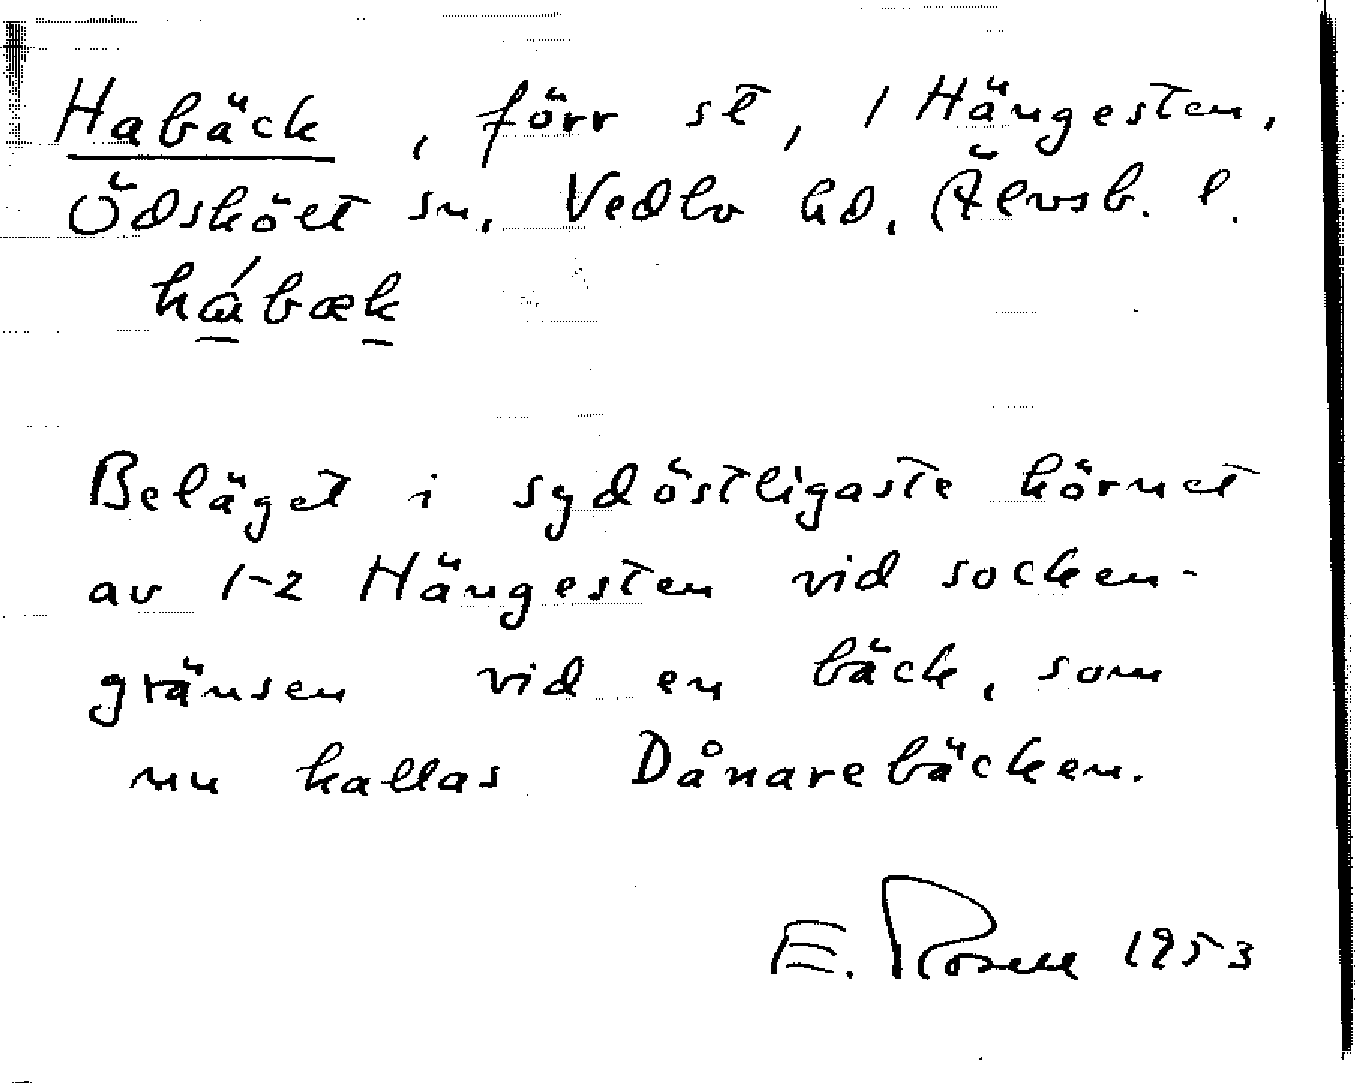 Habäck, förr st, 1 Hängesten,
Ödskölt sn. Vedbo hd. Älvsb. l.
hábæk
Beläget i sydöstligaste hörnet
av 1-2 Hängesten vid socken-
gränsen vid en bäck, som
nu kallas Dånarebäcken.
E. Rosell 1953